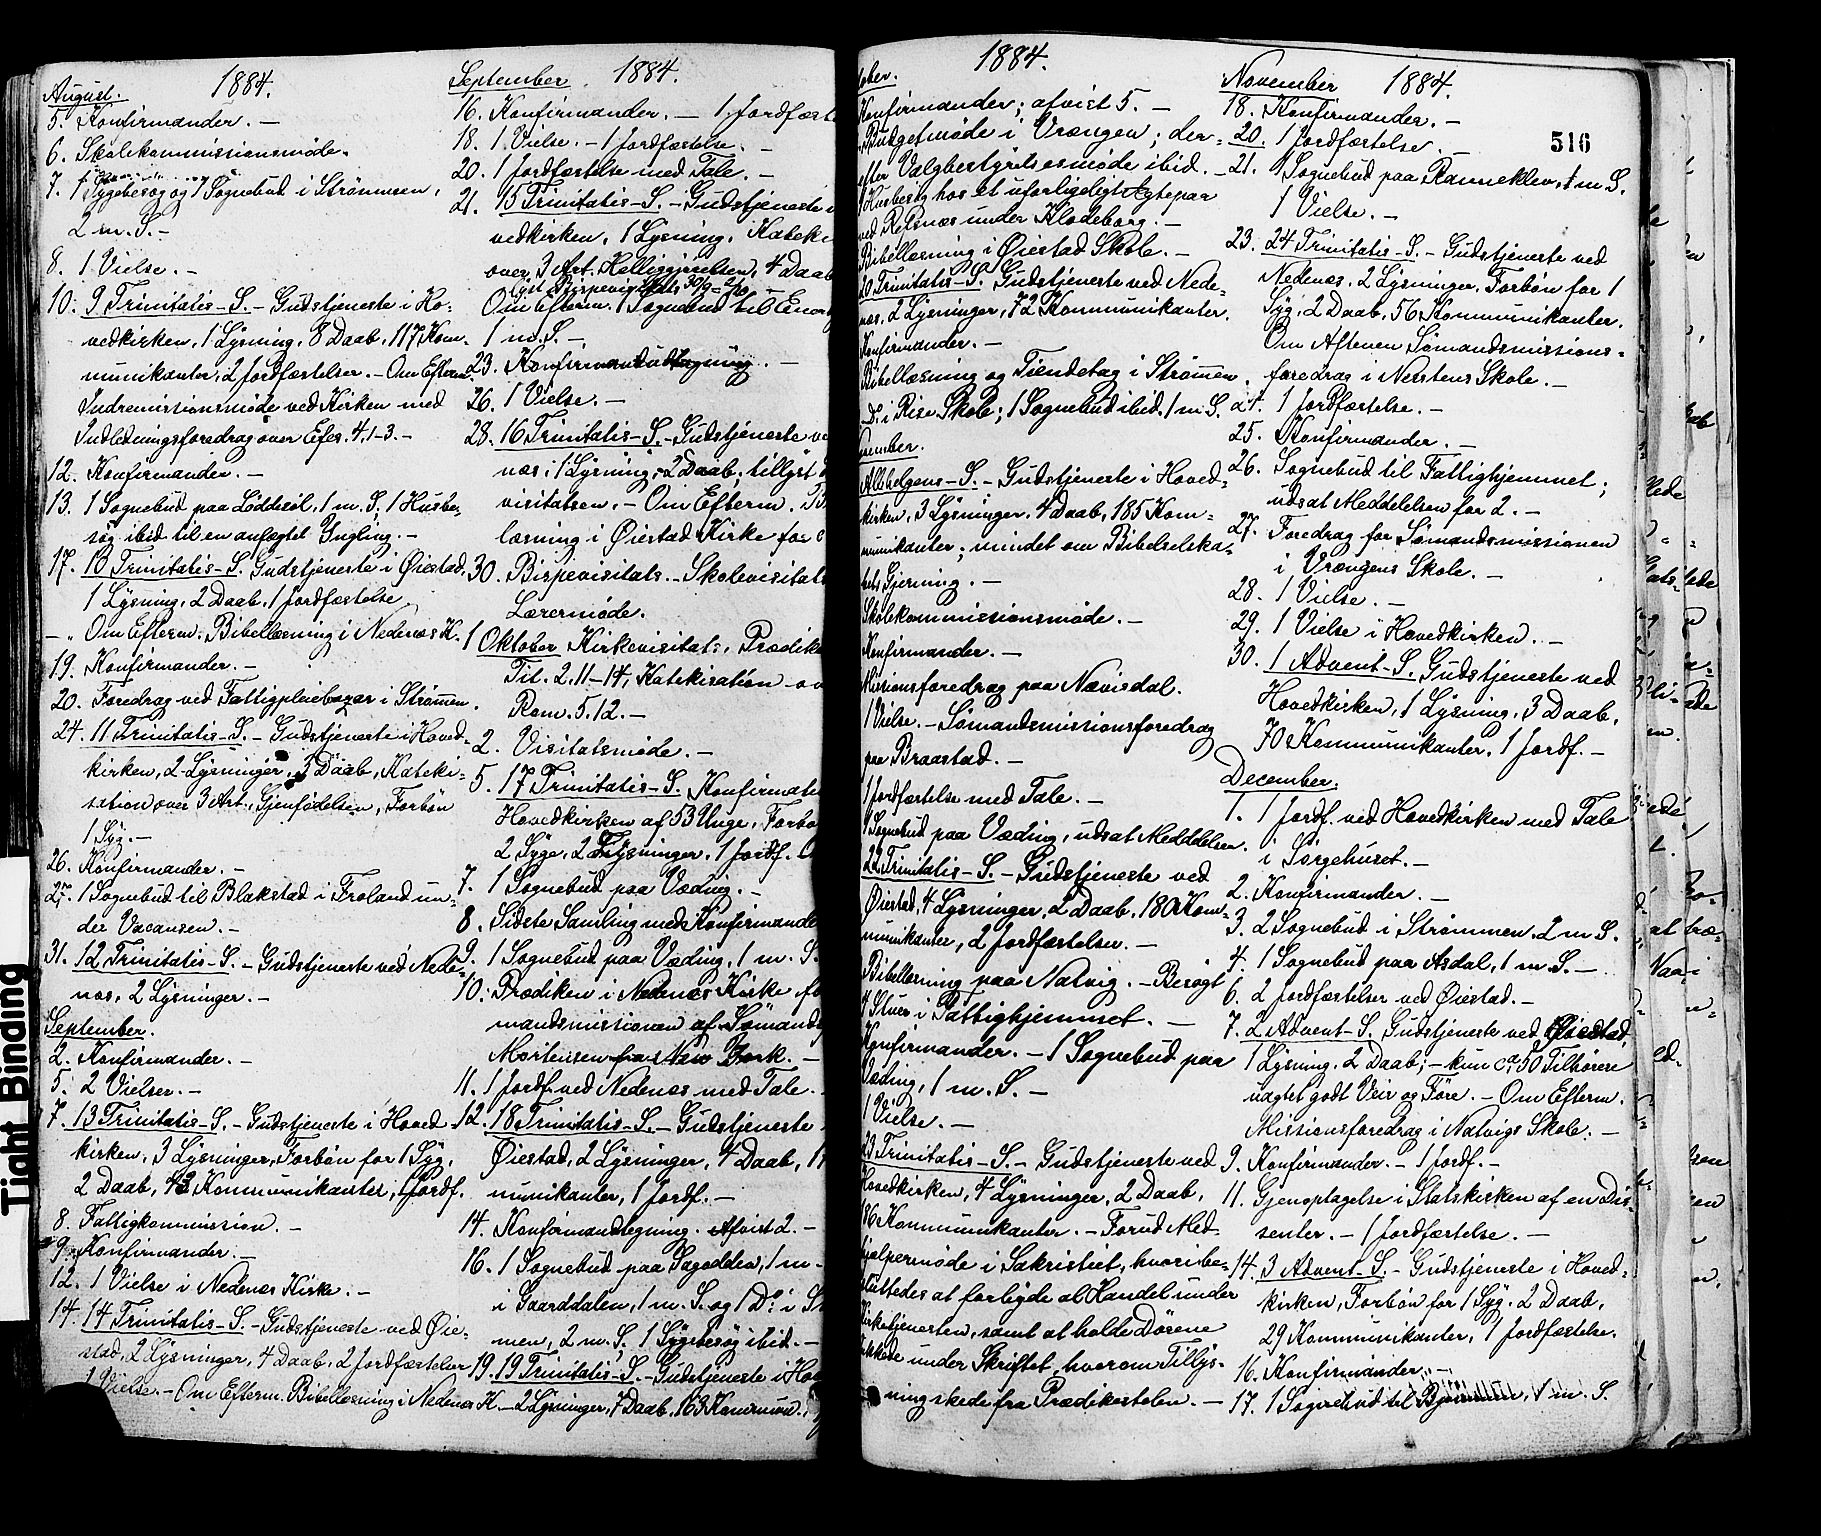 August. 1884.
5. Konfirmander. —
6. Skolekommissionsmøde.
7. 1 Sygebesøg og 1 Sognebud i Strømmen,
2 m. S. —
8. 1 Vielse. —
10. 9 Trinitatis-S. — Gudstjeneste i Ho-
vedkirken, 1 Lysning, 8 Daab, 117 Kom-
munikanter, 2 Jordfæstelser. — Om Efterm.
Indremissionsmøde ved Kirken med
Indledningsforedrag over Efes. 4, 1-3. —
12. Konfirmander. —
13. 1 Sognebud paa Løddesøl, 1 m. S. 1 Husbe-
søg ibid. til en anfægtet Yngling. —
17. 10 Trinitatis-S. Gudstjeneste i Øiestad,
1 Lysning, 2 Daab, 1 Jordfæstelse
—„ Om Efterm. Bibellæsning i Nedenæs K.
19. Konfirmander. —
20. Foredrag ved Fattigpleiebazar i Strømmen.
24. 11 Trinitatis-S. — Gudstjeneste i Hoved-
kirken, 2 Lysninger, 3 Daab, Kateki-
sation over 3 Art., Gjenfødelsen, Forbøn
1 Syg. —
26. Konfirmander. —
27. 1 Sognebud til Blakstad i Froland un-
der Vacansen. —
31. 12 Trinitatis-S. — Gudstjeneste ved Nede-
næs, 2 Lysninger. —
September.
2. Konfirmander. —
5. 2 Vielser. —
7. 13 Trinitatis-S. — Gudstjeneste i Hoved-
kirken, 3 Lysninger, Forbøn for 1 Syg,
2 Daab, 43 Kommunikanter, 1 Jordf.
8. Fattigkommission. —
9. Konfirmander. —
12. 1 Vielse i Nedenæs Kirke. —
14. 14 Trinitatis-S. — Gudstjeneste ved Øie-
stad, 2 Lysninger, 4 Daab, 2 Jordfæstelser
1 Vielse. — Om Efterm. Bibellæsning i Nedenæs K. —
September 1884.
16. Konfirmander. — 1 Jordfæst
18. 1 Vielse. — 1 Jordfæstelse. —
20. 1 Jordfæstelse med Tale. —
21. 15 Trinitatis-S. — Gudstjeneste i
vedkirken, 1 Lysning, Kateki
over 3 Art. Helliggjørelsen, 4 Daab
Lyst Bispevisitats 30/9 - 2/10
Om Efterm. 1 Sognebud til
1 m. S. —
23. Konfirmandudtagning. —
26. 1 Vielse. —
28. 16 Trinitatis-S. — Gudstjeneste ve
næs, 1 Lysning, 2 Daab; tillyst
visitatsen. — Om Efterm. B
læsning i Øiestad Kirke for
30. Bispevisitats. — Skolevisitats
Lærermøde.
1 Oktober Kirkevisitats, Prædike
Tit. 2, 11-14, Katekisation ov
Rom. 5. 12. —
2. Visitatsmøde. —
5. 17 Trinitatis-S. Konfirmati
Hovedkirken af 53 Unge, Forbø
2 Syge, 2 Lysninger, 1 Jordf.
7. 1 Sognebud paa Væding. —
8. Sidste Samling med Konfirmande
9. 1 Sognebud paa Væding, 1 m. S.
10. Prædiken i Nedenæs Kirke fo
mandsmissionen af Sømands
Mortensen fra New York. —
11. 1 Jordf. ved Nedenæs med Tale.
12. 18 Trinitatis-S. — Gudstjeneste
Øiestad, 2 Lysninger, 4 Daab, 1
munikanter, 1 Jordf. —
14. Konfirmandtegning. Afvist 2. —
16. 1 Sognebud paa 1 m.
i Gaarddalen, 1 m. S. og 1 Do. i St
men, 2 m. S. 1 Sygebesøg ibid. —
19. 19 Trinitatis-S. — Gudstjeneste i Hov
2 Lysninger, 7 Daab, 163 Kommun.
tober. 1884.
Konfirmander; afvist 5. —
Budgetmøde i Vrængen; der-
efter Valgbestyrelsesmøde ibid. —
Husbesøg hos et uforligeligt Ægtepar
ved Refsnæs under Klodeborg. —
Bibellæsning i Øiestad Skole. —
20 Trinitatis-S. Gudstjeneste ved Nede-
næs, 2 Lysninger, 72 Kommunikanter.
Konfirmander. —
Bibellæsning og Tiendetag i Strømmen.
Do. i Rise Skole; 1 Sognebud ibid. 1 m. S.
vember.
Allehelgens-S. — Gudstjeneste i Hoved-
kirken, 3 Lysninger, 4 Daab, 185 Kom-
munikanter; mindet om Bibelselska-
bets Gjerning. —
Skolekommissionsmøde. —
Konfirmander. —
Missionsforedrag paa Nævisdal.
1 Vielse. — Sømandsmissionsforedrag
paa Braastad. —
1 Jordfæstelse med Tale. —
1 Sognebud paa Væding, udsat Meddelelsen.
22 Trinitatis-S. — Gudstjeneste ved
Øiestad, 4 Lysninger, 2 Daab, 180 Kom-
munikanter, 2 Jordfæstelser. —
Bibellæsning paa Natvig. — Besøgt
4 Stuer i Fattighjemmet. —
Konfirmander. — 1 Sognebud paa
Væding, 1 m. S. —
1 Vielse. —
23 Trinitatis-S. — Gudstjeneste ved
Hovedkirken, 4 Lysninger, 2 Daab,
86 Kommunikanter. — Forud Med-
hjælpermøde i Sakristiet, hvori be-
sluttedes at forbyde al Handel under
Kirketjenesten, samt at holde Dørene
lukkede under Skriftet, hvorom Tillys-
ning skede fra Prædikestolen. —
November 1884.
516
18. Konfirmander. —
20. 1 Jordfæstelse. —
21. 1 Sognebud paa Ranneklev, 1 m S.
1 Vielse. —
23. 24 Trinitatis-S. — Gudstjeneste ved
Nedenæs, 2 Lysninger, Forbøn for 1
Syg, 2 Daab, 56 Kommunikanter.
Om Aftenen Sømandsmissions-
foredrag i Nerstens Skole. —
24. 1 Jordfæstelse. —
25. Konfirmander. —
26. Sognebud til Fattighjemmet;
udsat Meddelelsen for 2. —
27. Foredrag for Sømandsmissionen
i Vrængens Skole. —
28. 1 Vielse. —
29. 1 Vielse i Hovedkirken. —
30. 1 Advent-S. Gudstjeneste ved
Hovedkirken, 1 Lysning, 3 Daab,
70 Kommunikanter, 1 Jordf. —
December.
1. 1 Jordf. ved Hovedkirken med Tale
i Sørgehuset. —
2. Konfirmander. —
3. 2 Sognebud i Strømmen, 2 m S.
4. 1 Sognebud paa Asdal, 1 m. S. —
6. 2 Jordfæstelser ved Øiestad. —
7. 2 Advent-S. Gudstjeneste ved Øiestad,
1 Lysning, 2 Daab; — kun ca. 50 Tilhørere
uagtet godt Veir og Føre. — Om Efterm.
Missionsforedrag i Natvigs Skole. —
9. Konfirmander. — 1 Jordf. —
11. Gjenoptagelse i Statskirken af en Dis-
senter. — 1 Jordfæstelse. —
14. 3 Advent-S. — Gudstjeneste i Hoved-
kirken, Forbøn for 1 Syg. 2 Daab,
29 Kommunikanter, 1 Jordfæstelse.
16. Konfirmander. —
17. 1 Sognebud til 1 m. S.
Tight Binding